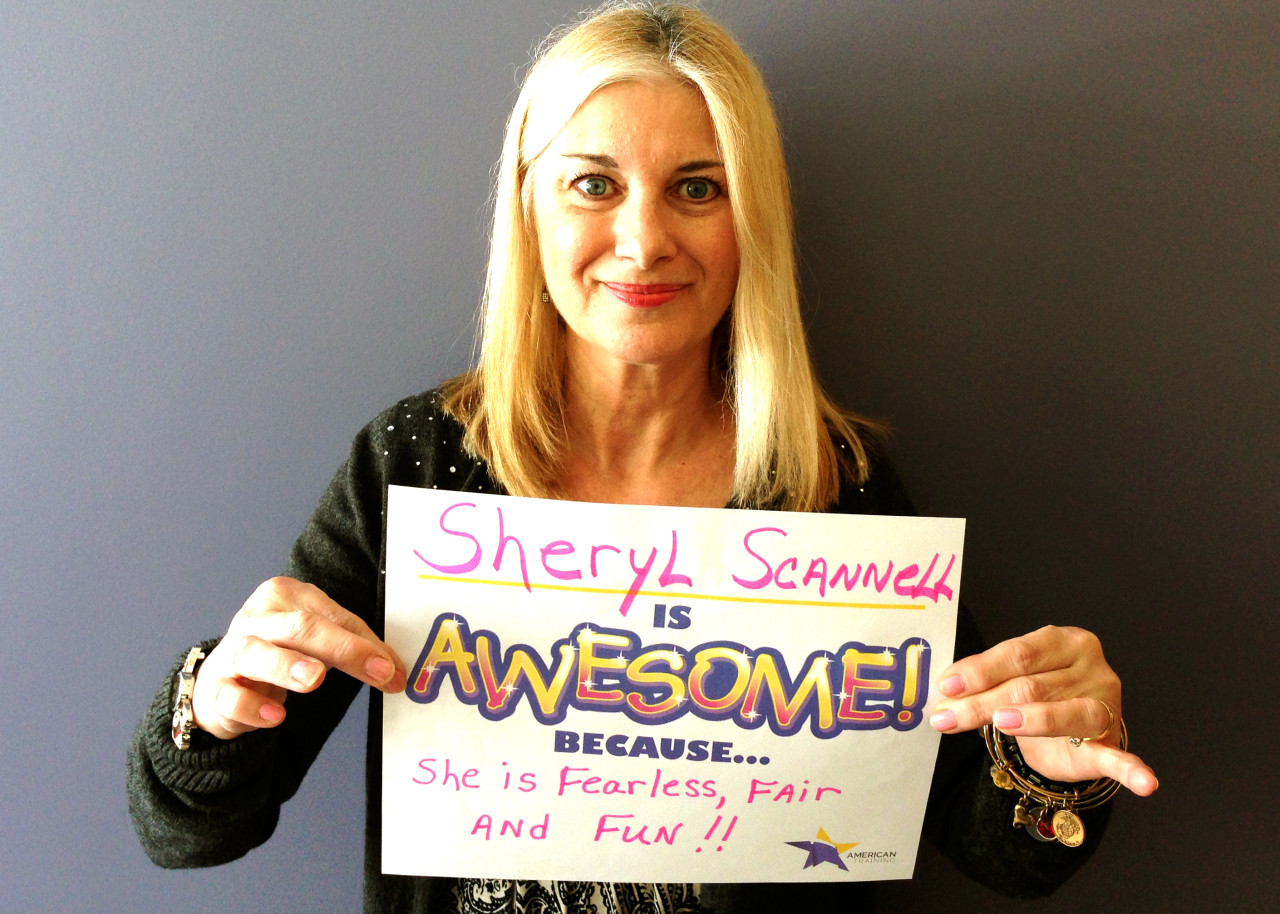 Sheryl Scannell
IS
AWESOME!
BECAUSE...
She is Fearless, FAir
AND FUN!!
AMERICAN
TRAINING